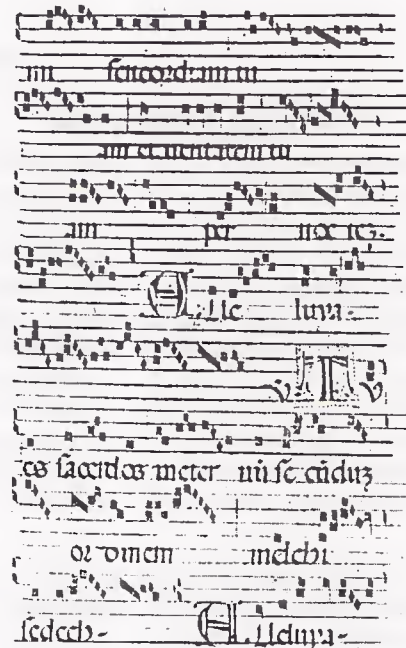 mi sericordiam tu
am et ueritatem tu
am per noctes.
Alle luya.
V. Tu
es sacerdos ineter nu se cũduz
or dinem melchi
sedech. Alleluya.